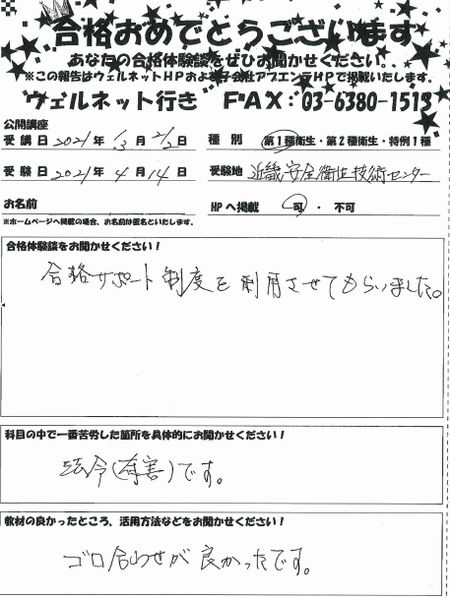 合格おめでとうございます
あなたの合格体験談をぜひお聞かせください。.
※この報告はウェルネットHPおよび子会社アプエンテHPで掲載いたします。
ウェルネット行き FAX:03-6380-1513
公開講座
受講日 2021年 月 日 種別 第1種衛生・第2種衛生・特例1種
受験日 2021年 4月 14日 受験地 近畿安全衛生技術センター
お名前 HPへ掲載 可・不可
※ホームページへ掲載の場合、お名前は匿名といたします。
合格体験談をお聞かせください!
合格サポート制度を利用させてもらいました。
科目の中で一番苦労した箇所を具体的にお聞かせください!
法令(有害)です。
教材の良かったところ、活用方法などをお聞かせください!
ゴロ合わせが良かったです。